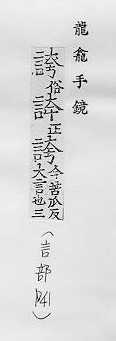 龍龕手鏡
俗正誇今苦瓜反大言也三（言部P41）